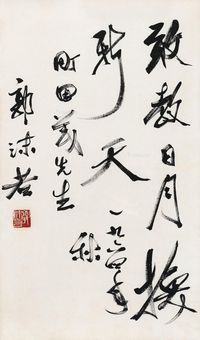 敢教日月换
新天
一九六四年
秋
町田茂先生
郭沫若